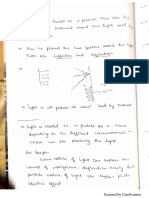 treated as a particle then the
travel around the light and by
→ Then he found the two factors around the lig
Them are reflection and refraction.
→ Light is not particle its wave said by
→ Light is treated as a particle or a wave
depending on the different circumstances in
which we are observing the light
For Example:
Wave nature of light can explain the
concept of interference, diffraction nicely but
particle nature of light can explain photo
electric effect
Scanned by CamScanner